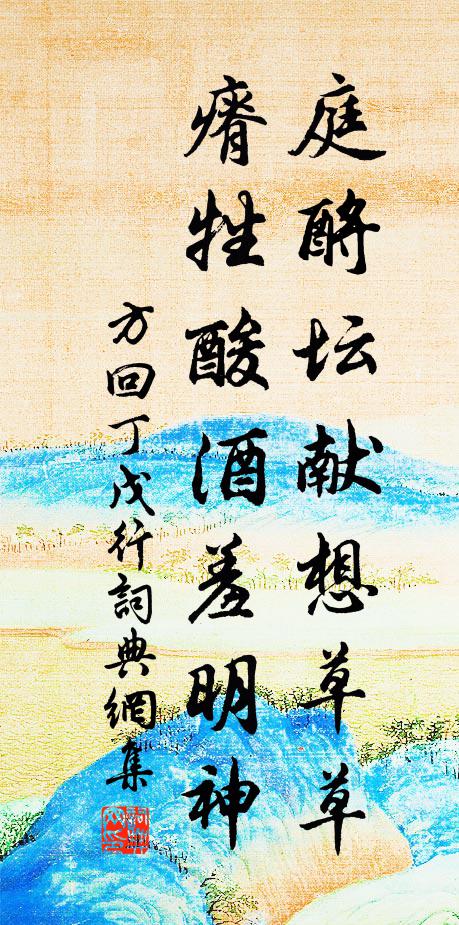 庭酹坛献想草草
瘠牲酸酒羞明神
方回丁戊行詞典網集